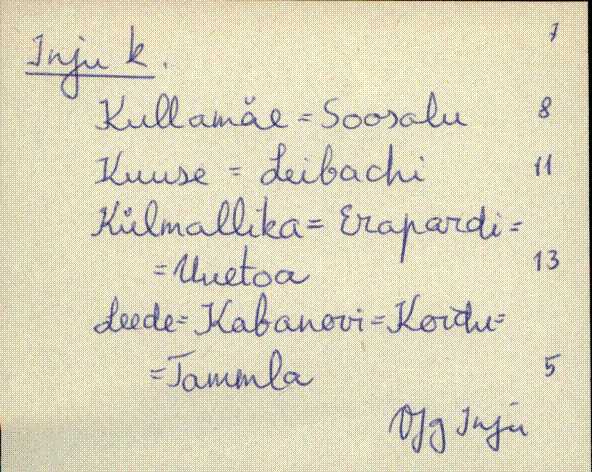 7
Inju k.
Kullamäe = Soosalu 8
Kuuse = Leibachi 11
Külmallika = Erapardi =
= Uuetoa 13
Leede = Kabanovi = Koidu =
= Tammla 5
Inju